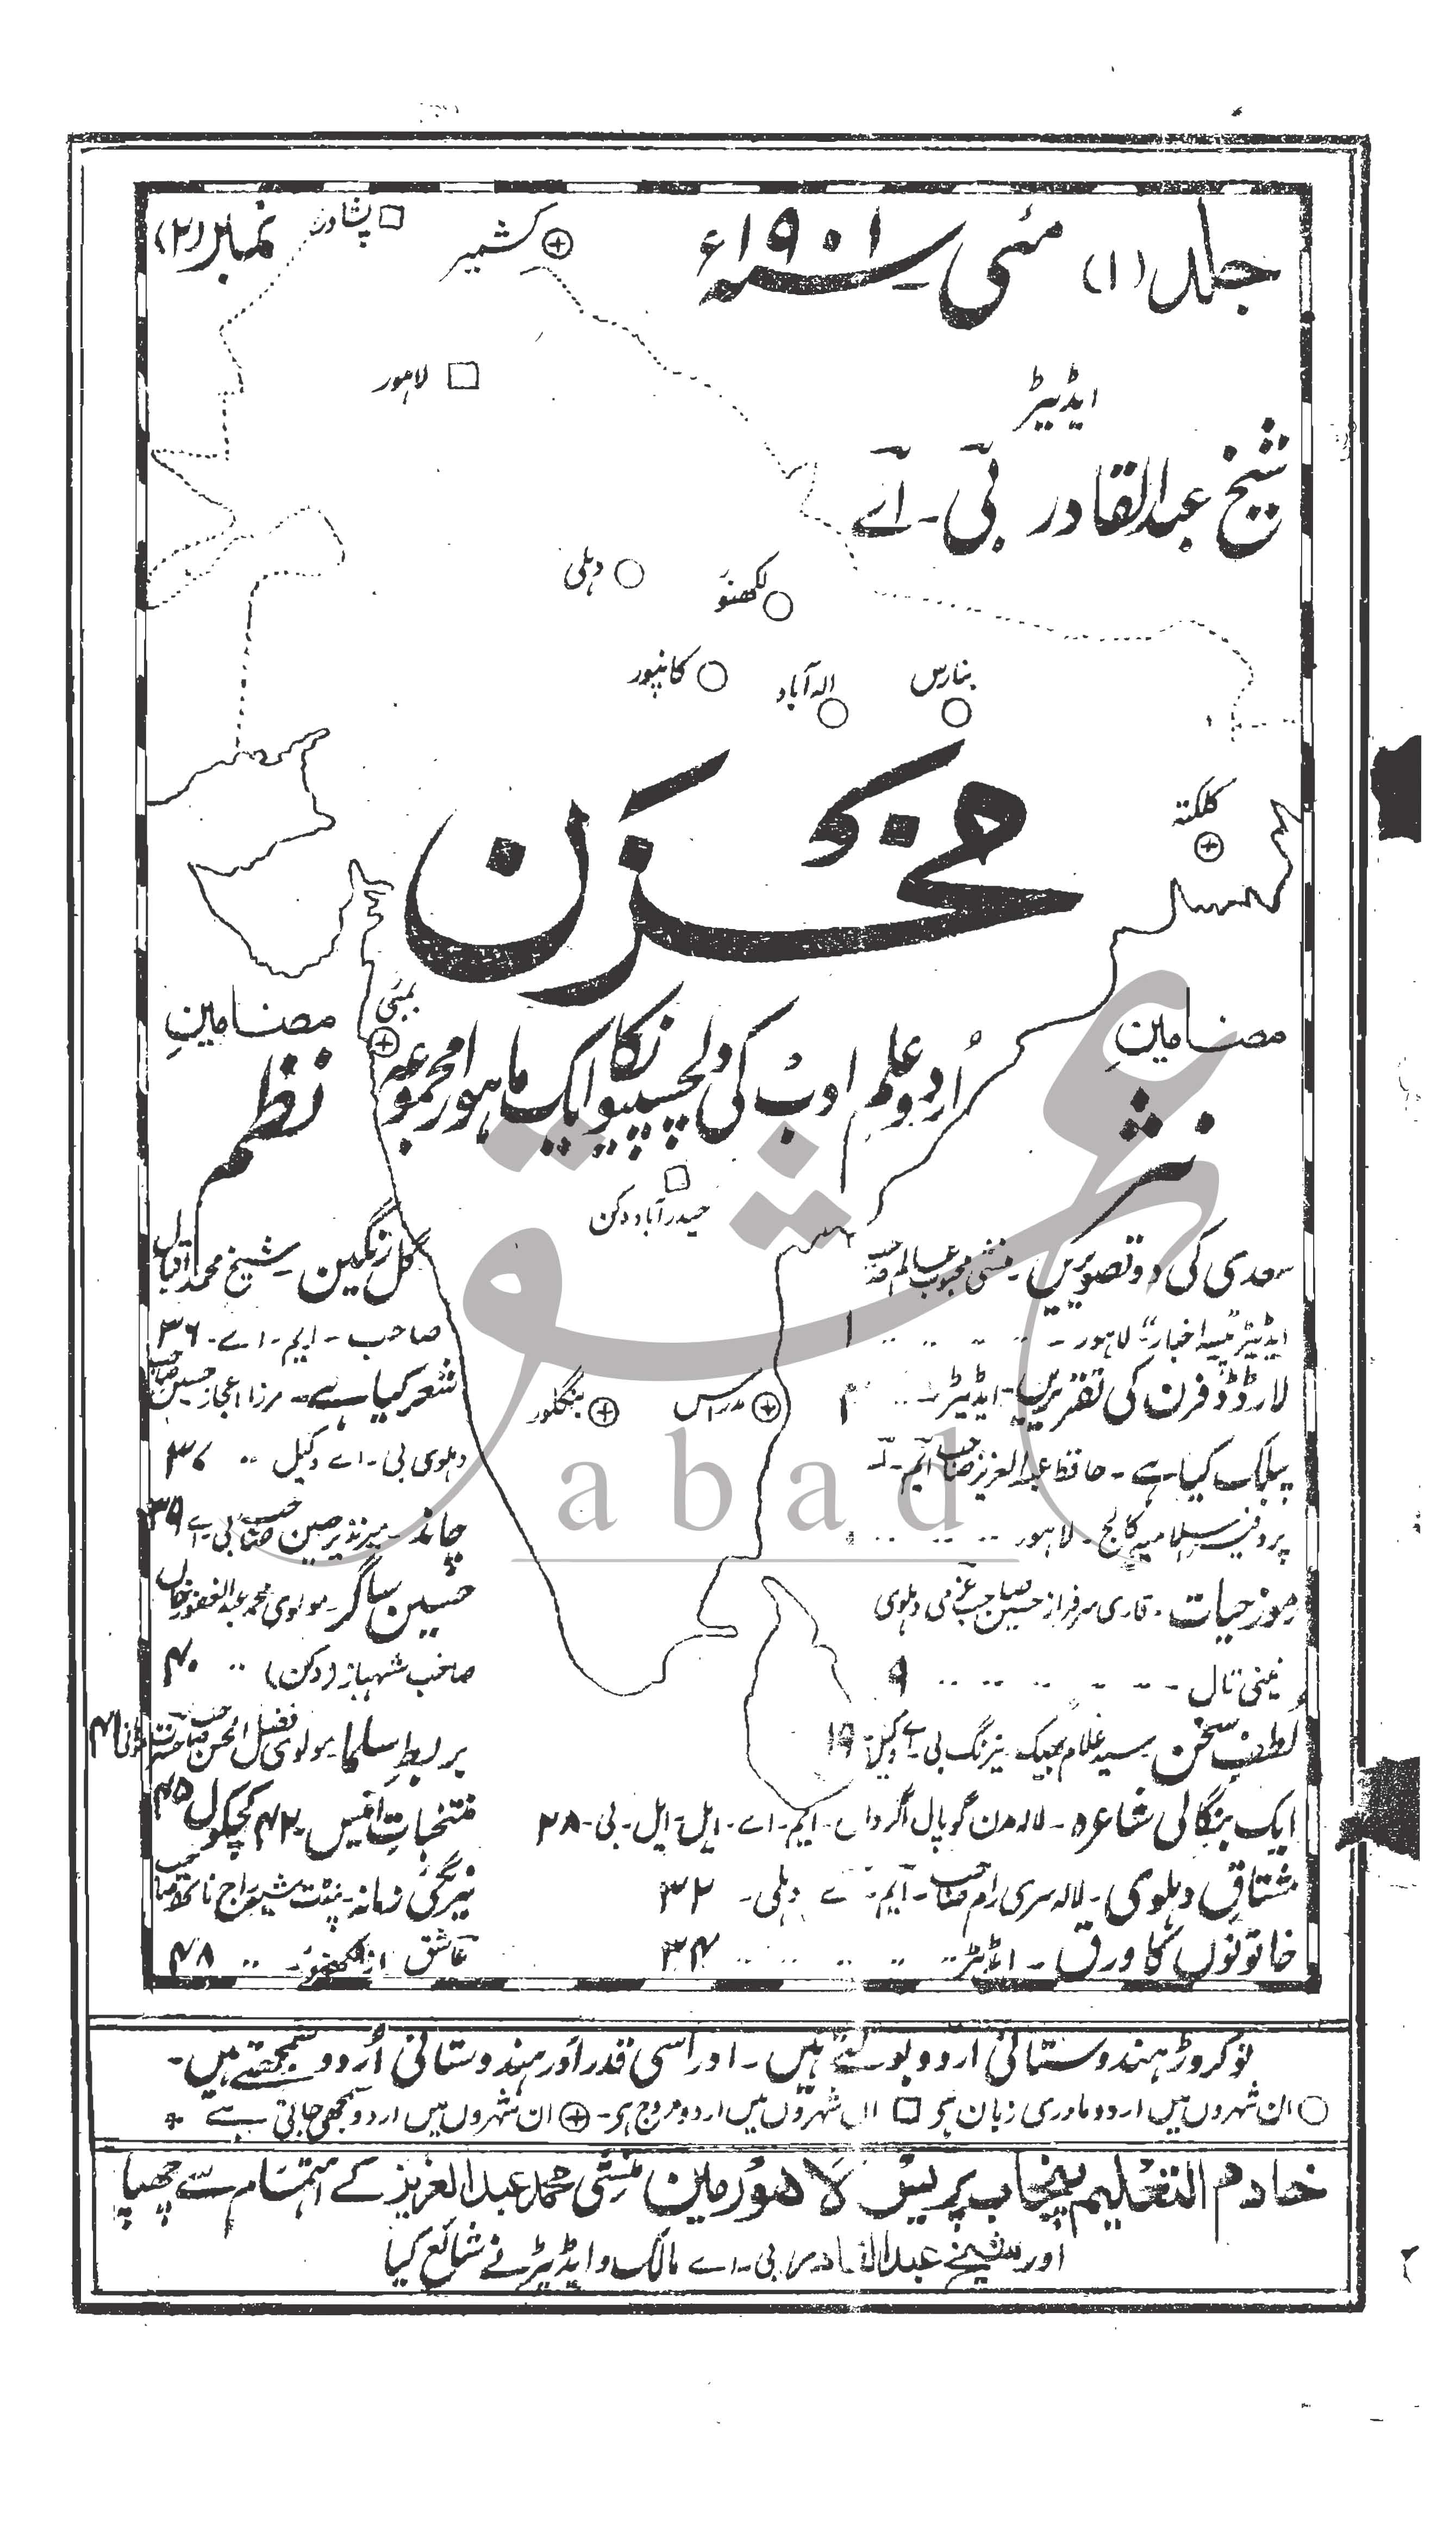 جلد (۱) مئی سنہ ۱۹۰۱ء نمبر (۲)
پشاور
کشمیر
لاہور
ایڈیٹر
شیخ عبدالقادر بی۔اے
دہلی
لکھنؤ
کانپور
الہ آباد
بنارس
کلکتہ
مخزن
بمبئی
اُردو علم ادب کی دلچسپیوں کا ایک ماہوار مجموعہ
حیدرآباد دکن
بنگلور
مدراس
مضامینِ
نثر
سعدی کی دو تصویریں۔ منشی محبوب عالم صاحب
ایڈیٹر "پیسہ اخبار" لاہور ۔ ۱
لارڈ ڈفرن کی تقریریں۔ ایڈیٹر ۴
پبلک کیا ہے۔ حافظ عبدالعزیز صاحب ایم۔اے
پروفیسر اسلامیہ کالج۔ لاہور
رموز حیات۔ قاری سرفراز حسین صاحب عزمی دہلوی
نینی تال ۹
لُطفِ سخن سید غلام بھیک نیرنگ بی۔اے وکیل ۱۹
ایک بنگالی شاعرہ۔ لالہ مدن گوپال اگروال۔ ایم۔اے۔ ایل۔ایل۔بی۔ ۲۸
مشتاق دہلوی۔ لالہ سری رام صاحب۔ ایم۔اے دہلی۔ ۳۲
خاتونوں کا ورق۔ اڈیٹر ۳۴
مضامینِ
نظم
گل رنگین۔ شیخ محمد اقبال
صاحب۔ ایم۔اے۔ ۳۶
شعر کیا ہے۔ مرزا اعجاز حسین صاحب
دہلوی بی۔اے وکیل ۳۷
چاند۔ میر نذیر حسین صاحب بی۔اے ۳۹
حسین ساگر۔ مولوی محمد عبدالغفور خاں
صاحب شہباز (دکن) ۴۰
بربطِ سلما۔ مولوی فضل الحسن صاحب حسرت موہانی ۴۱
منتخبات انیس ۴۲ کچکول ۴۵
نیرنگئ زمانہ۔ پنڈت شیوراج ناتھ صاحب
عاشق از لکھنؤ ۴۸
نو کروڑ ہندوستانی اردو بولتے ہیں۔ اور اسی قدر اور ہندوستانی اُردو سمجھتے ہیں۔
○ ان شہروں میں اردو مادری زبان ہے □ ان شہروں میں اردو مروج ہے۔ ⊕ ان شہروں میں اردو سمجھی جاتی ہے
خادم التعلیم پنجاب پریس لاہور مین منشی محمد عبدالعزیز کے اہتمام سے چھپا
اور شیخ عبدالقادر بی۔اے مالک و ایڈیٹر نے شائع کیا
عشق
abad